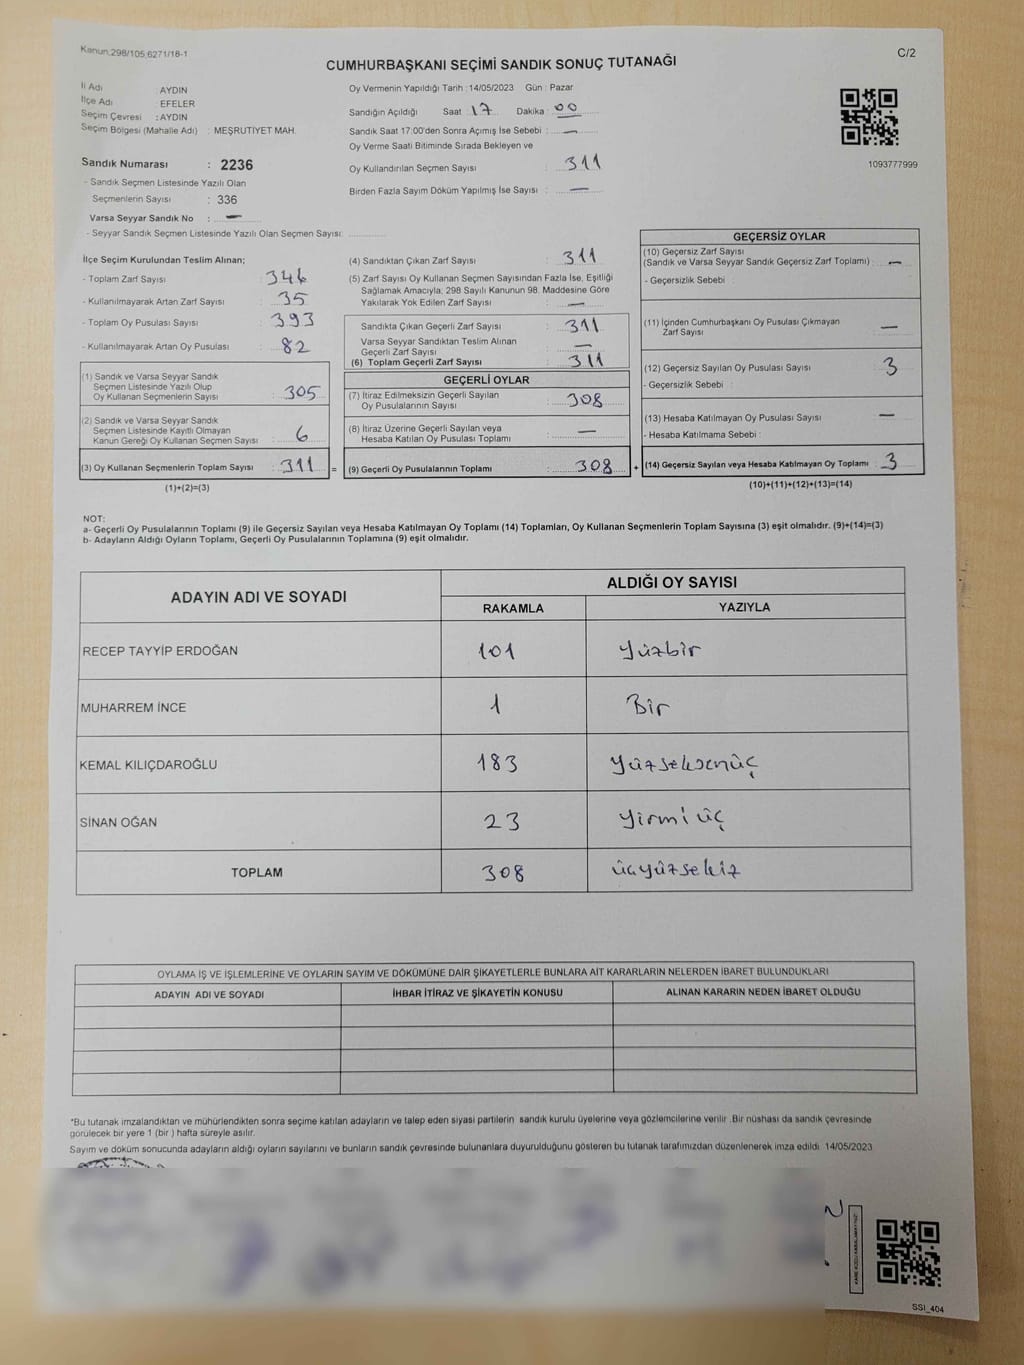 Kanun:298/105,6271/18-1
C/2
CUMHURBAŞKANI SEÇİMİ SANDIK SONUÇ TUTANAĞI
İl Adı : AYDIN
İlçe Adı : EFELER
Seçim Çevresi : AYDIN
Seçim Bölgesi (Mahalle Adı) : MEŞRUTİYET MAH.
Sandık Numarası : 2236
- Sandık Seçmen Listesinde Yazılı Olan
Seçmenlerin Sayısı : 336
Varsa Seyyar Sandık No : —
- Seyyar Sandık Seçmen Listesinde Yazılı Olan Seçmen Sayısı: ............
Oy Vermenin Yapıldığı Tarih : 14/05/2023 Gün : Pazar
Sandığın Açıldığı Saat : 17 Dakika : 00
Sandık Saat 17:00'den Sonra Açımış İse Sebebi : —
Oy Verme Saati Bitiminde Sırada Bekleyen ve
Oy Kullandırılan Seçmen Sayısı : 311
Birden Fazla Sayım Döküm Yapılmış İse Sayısı : —
1093777999
İlçe Seçim Kurulundan Teslim Alınan;
- Toplam Zarf Sayısı : 346
- Kullanılmayarak Artan Zarf Sayısı : 35
- Toplam Oy Pusulası Sayısı : 393
- Kullanılmayarak Artan Oy Pusulası : 82
(1) Sandık ve Varsa Seyyar Sandık
Seçmen Listesinde Yazılı Olup
Oy Kullanan Seçmenlerin Sayısı : 305
(2) Sandık ve Varsa Seyyar Sandık
Seçmen Listesinde Kayıtlı Olmayan
Kanun Gereği Oy Kullanan Seçmen Sayısı : 6
(3) Oy Kullanan Seçmenlerin Toplam Sayısı : 311 =
(1)+(2)=(3)
(4) Sandıktan Çıkan Zarf Sayısı : 311
(5) Zarf Sayısı Oy Kullanan Seçmen Sayısından Fazla İse, Eşitliği
Sağlamak Amacıyla, 298 Sayılı Kanunun 98. Maddesine Göre
Yakılarak Yok Edilen Zarf Sayısı : —
Sandıkta Çıkan Geçerli Zarf Sayısı : 311
Varsa Seyyar Sandıktan Teslim Alınan
Geçerli Zarf Sayısı : —
(6) Toplam Geçerli Zarf Sayısı : 311
GEÇERLİ OYLAR
(7) İtiraz Edilmeksizin Geçerli Sayılan
Oy Pusulalarının Sayısı : 308
(8) İtiraz Üzerine Geçerli Sayılan veya
Hesaba Katılan Oy Pusulası Toplamı : —
(9) Geçerli Oy Pusulalarının Toplamı : 308 +
GEÇERSİZ OYLAR
(10) Geçersiz Zarf Sayısı
(Sandık ve Varsa Seyyar Sandık Geçersiz Zarf Toplamı) : —
- Geçersizlik Sebebi :
(11) İçinden Cumhurbaşkanı Oy Pusulası Çıkmayan
Zarf Sayısı : —
(12) Geçersiz Sayılan Oy Pusulası Sayısı : 3
- Geçersizlik Sebebi :
(13) Hesaba Katılmayan Oy Pusulası Sayısı : —
- Hesaba Katılmama Sebebi :
(14) Geçersiz Sayılan veya Hesaba Katılmayan Oy Toplamı : 3
(10)+(11)+(12)+(13)=(14)
NOT:
a- Geçerli Oy Pusulalarının Toplamı (9) ile Geçersiz Sayılan veya Hesaba Katılmayan Oy Toplamı (14) Toplamları, Oy Kullanan Seçmenlerin Toplam Sayısına (3) eşit olmalıdır. (9)+(14)=(3)
b- Adayların Aldığı Oyların Toplamı, Geçerli Oy Pusulalarının Toplamına (9) eşit olmalıdır.
ADAYIN ADI VE SOYADI
ALDIĞI OY SAYISI
RAKAMLA YAZIYLA
RECEP TAYYİP ERDOĞAN 101 Yüzbir
MUHARREM İNCE 1 Bir
KEMAL KILIÇDAROĞLU 183 Yüzseksenüç
SİNAN OĞAN 23 Yirmiüç
TOPLAM 308 üçyüzsekiz
OYLAMA İŞ VE İŞLEMLERİNE VE OYLARIN SAYIM VE DÖKÜMÜNE DAİR ŞİKAYETLERLE BUNLARA AİT KARARLARIN NELERDEN İBARET BULUNDUKLARI
ADAYIN ADI VE SOYADI İHBAR İTİRAZ VE ŞİKAYETİN KONUSU ALINAN KARARIN NEDEN İBARET OLDUĞU
*Bu tutanak imzalandıktan ve mühürlendikten sonra seçime katılan adayların ve talep eden siyasi partilerin sandık kurulu üyelerine veya gözlemcilerine verilir .Bir nüshası da sandık çevresinde
görülecek bir yere 1 (bir ) hafta süreyle asılır.
Sayım ve döküm sonucunda adayların aldığı oyların sayılarını ve bunların sandık çevresinde bulunanlara duyurulduğunu gösteren bu tutanak tarafımızdan düzenlenerek imza edildi. 14/05/2023
SSI_404